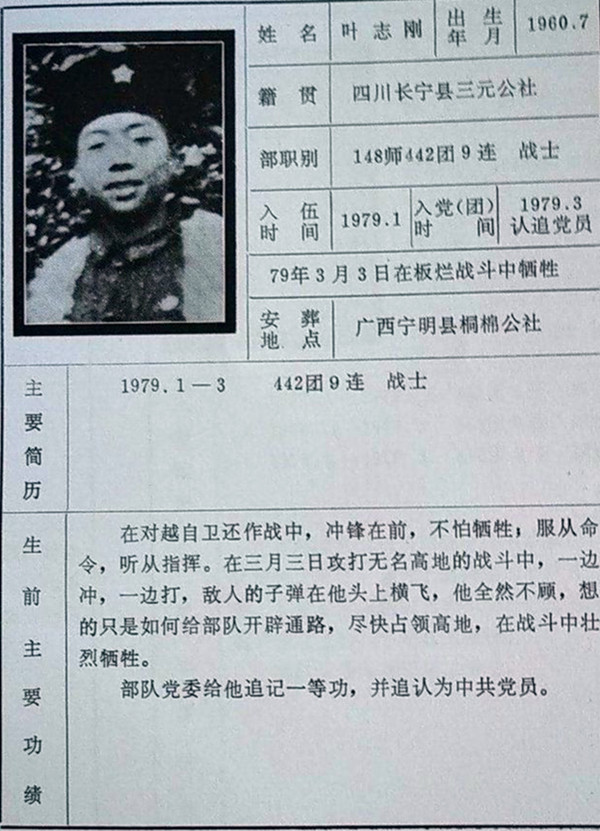 姓名 叶志刚 出生年月 1960.7
籍贯 四川长宁县三元公社
部职别 148师442团9连 战士
入伍时间 1979.1 入党(团)时间 1979.3 认追党员
79年3月3日在板烂战斗中牺牲
安葬地点 广西宁明县桐棉公社
主要简历 1979.1—3 442团9连 战士
生前主要功绩
在对越自卫还作战中，冲锋在前，不怕牺牲；服从命
令，听从指挥。在三月三日攻打无名高地的战斗中，一边
冲，一边打，敌人的子弹在他头上横飞，他全然不顾，想
的只是如何给部队开辟通路，尽快占领高地，在战斗中壮
烈牺牲。
部队党委给他追记一等功，并追认为中共党员。